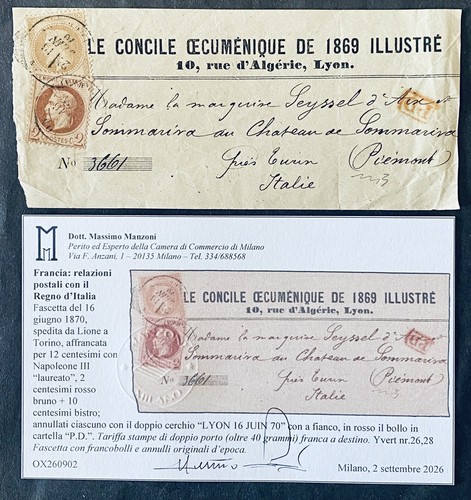 LE CONCILE ŒCUMÉNIQUE DE 1869 ILLUSTRÉ
10, rue d'Algérie, Lyon.
Madame la marquise Seyssel d'Aix et
Sommariva du Chateau de Sommariva
No 3661
près Turin
Piémont
Italie
P.D.
Dott. Massimo Manzoni
Perito ed Esperto della Camera di Commercio di Milano
Via F. Anzani, 1 – 20135 Milano – Tel. 334/688568
Francia: relazioni
postali con il
Regno d'Italia
Fascetta del 16
giugno 1870,
spedita da Lione a
Torino, affrancata
per 12 centesimi con
Napoleone III
"laureato", 2
centesimi rosso
bruno + 10
centesimi bistro;
annullati ciascuno con il doppio cerchio "LYON 16 JUIN 70" con a fianco, in rosso il bollo in
cartella "P.D.". Tariffa stampe di doppio porto (oltre 40 grammi) franca a destino. Yvert nr.26,28
Fascetta con francobolli e annulli originali d'epoca.
OX260902
Milano, 2 settembre 2026
LE CONCILE ŒCUMÉNIQUE DE 1869 ILLUSTRÉ
10, rue d'Algérie, Lyon.
Madame la marquise Seyssel d'Aix et
Sommariva du Chateau de Sommariva
No 3661
près Turin
Piémont
Italie
P.D.